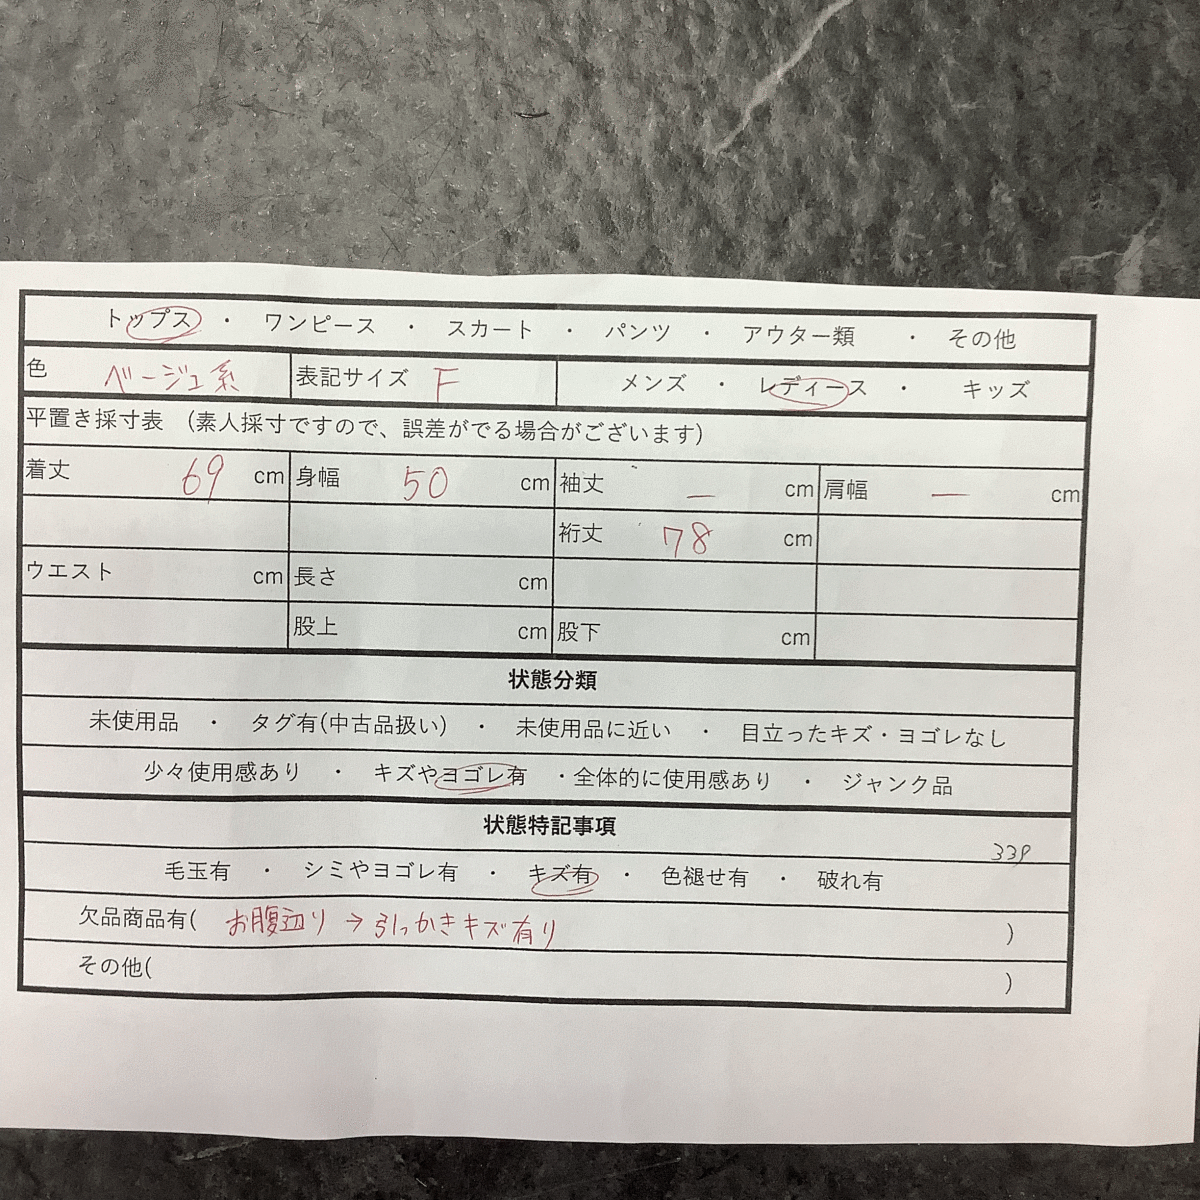 トップス ・ ワンピース ・ スカート ・ パンツ ・ アウター類 ・ その他
色 ベージュ系 表記サイズ F メンズ ・ レディース ・ キッズ
平置き採寸表 (素人採寸ですので、誤差がでる場合がございます)
着丈 69 cm 身幅 50 cm 袖丈 ― cm 肩幅 ― cm
裄丈 78 cm
ウエスト cm 長さ cm
股上 cm 股下 cm
状態分類
未使用品 ・ タグ有(中古品扱い) ・ 未使用品に近い ・ 目立ったキズ・ヨゴレなし
少々使用感あり ・ キズやヨゴレ有 ・全体的に使用感あり ・ ジャンク品
状態特記事項
339
毛玉有 ・ シミやヨゴレ有 ・ キズ有 ・ 色褪せ有 ・ 破れ有
欠品商品有( お腹辺り→引っかきキズ有り )
その他( )